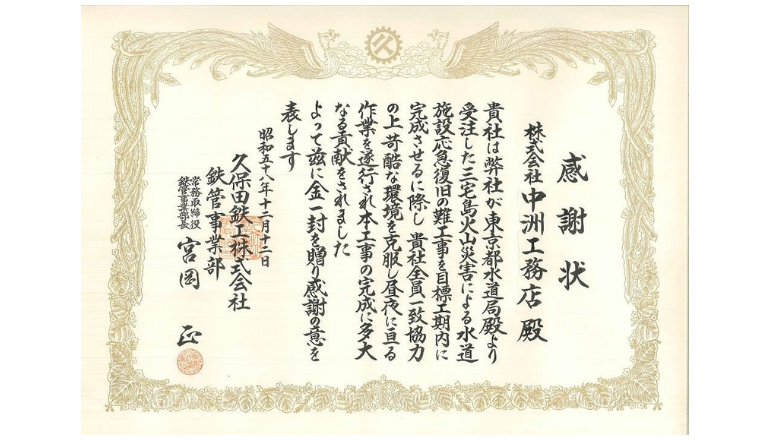 感謝状
株式会社 中洲工務店 殿
貴社は弊社が東京都水道局殿より
受注した三宅島火山災害による水道
施設応急復旧の難工事を目標工期内に
完成させるに際し貴社全員一致協力
の上苛酷な環境を克服し昼夜に亘る
作業を遂行され本工事の完成に多大
なる貢献をされました
よって茲に金一封を贈り感謝の意を
表します
昭和五十八年十二月十二日
久保田鉄工株式会社
鉄管事業部
常務取締役
鉄管事業部長
宮岡 正